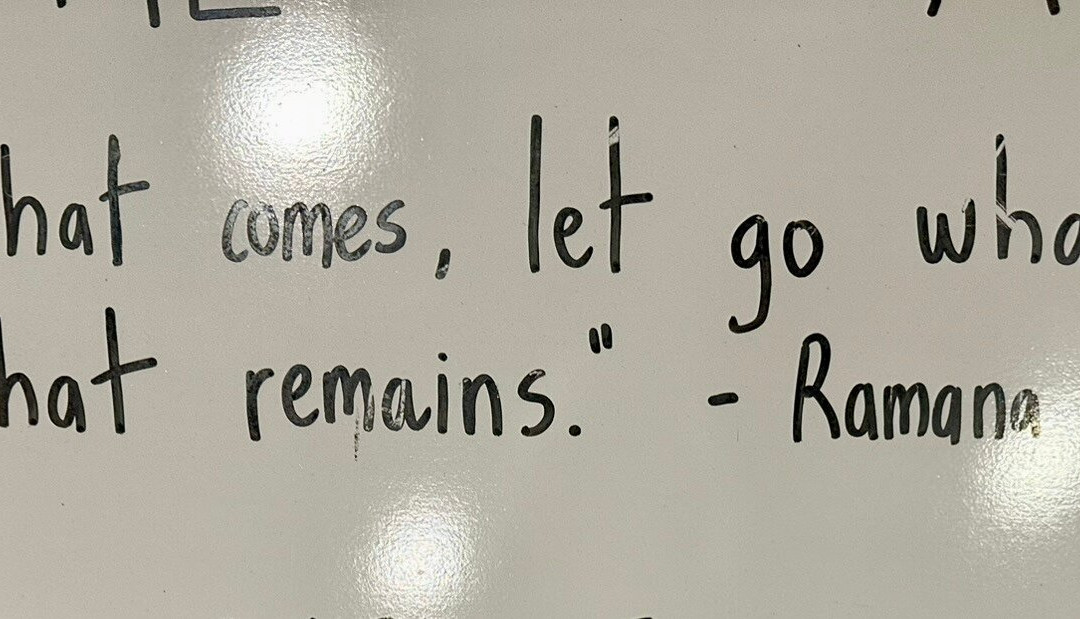 hat comes, let go wha
hat remains." - Ramana